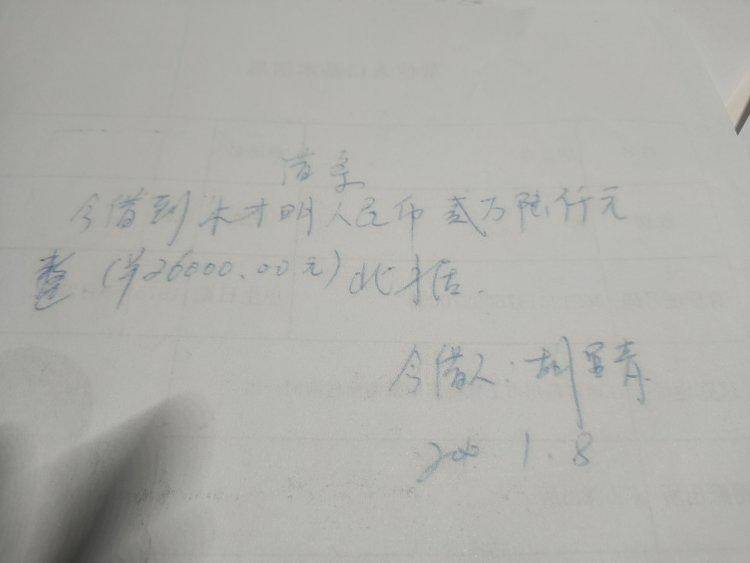 借条
今借到朱才明人民币贰万陆仟元
整(¥26000.00元)此据.
今借人:胡军青
1.8